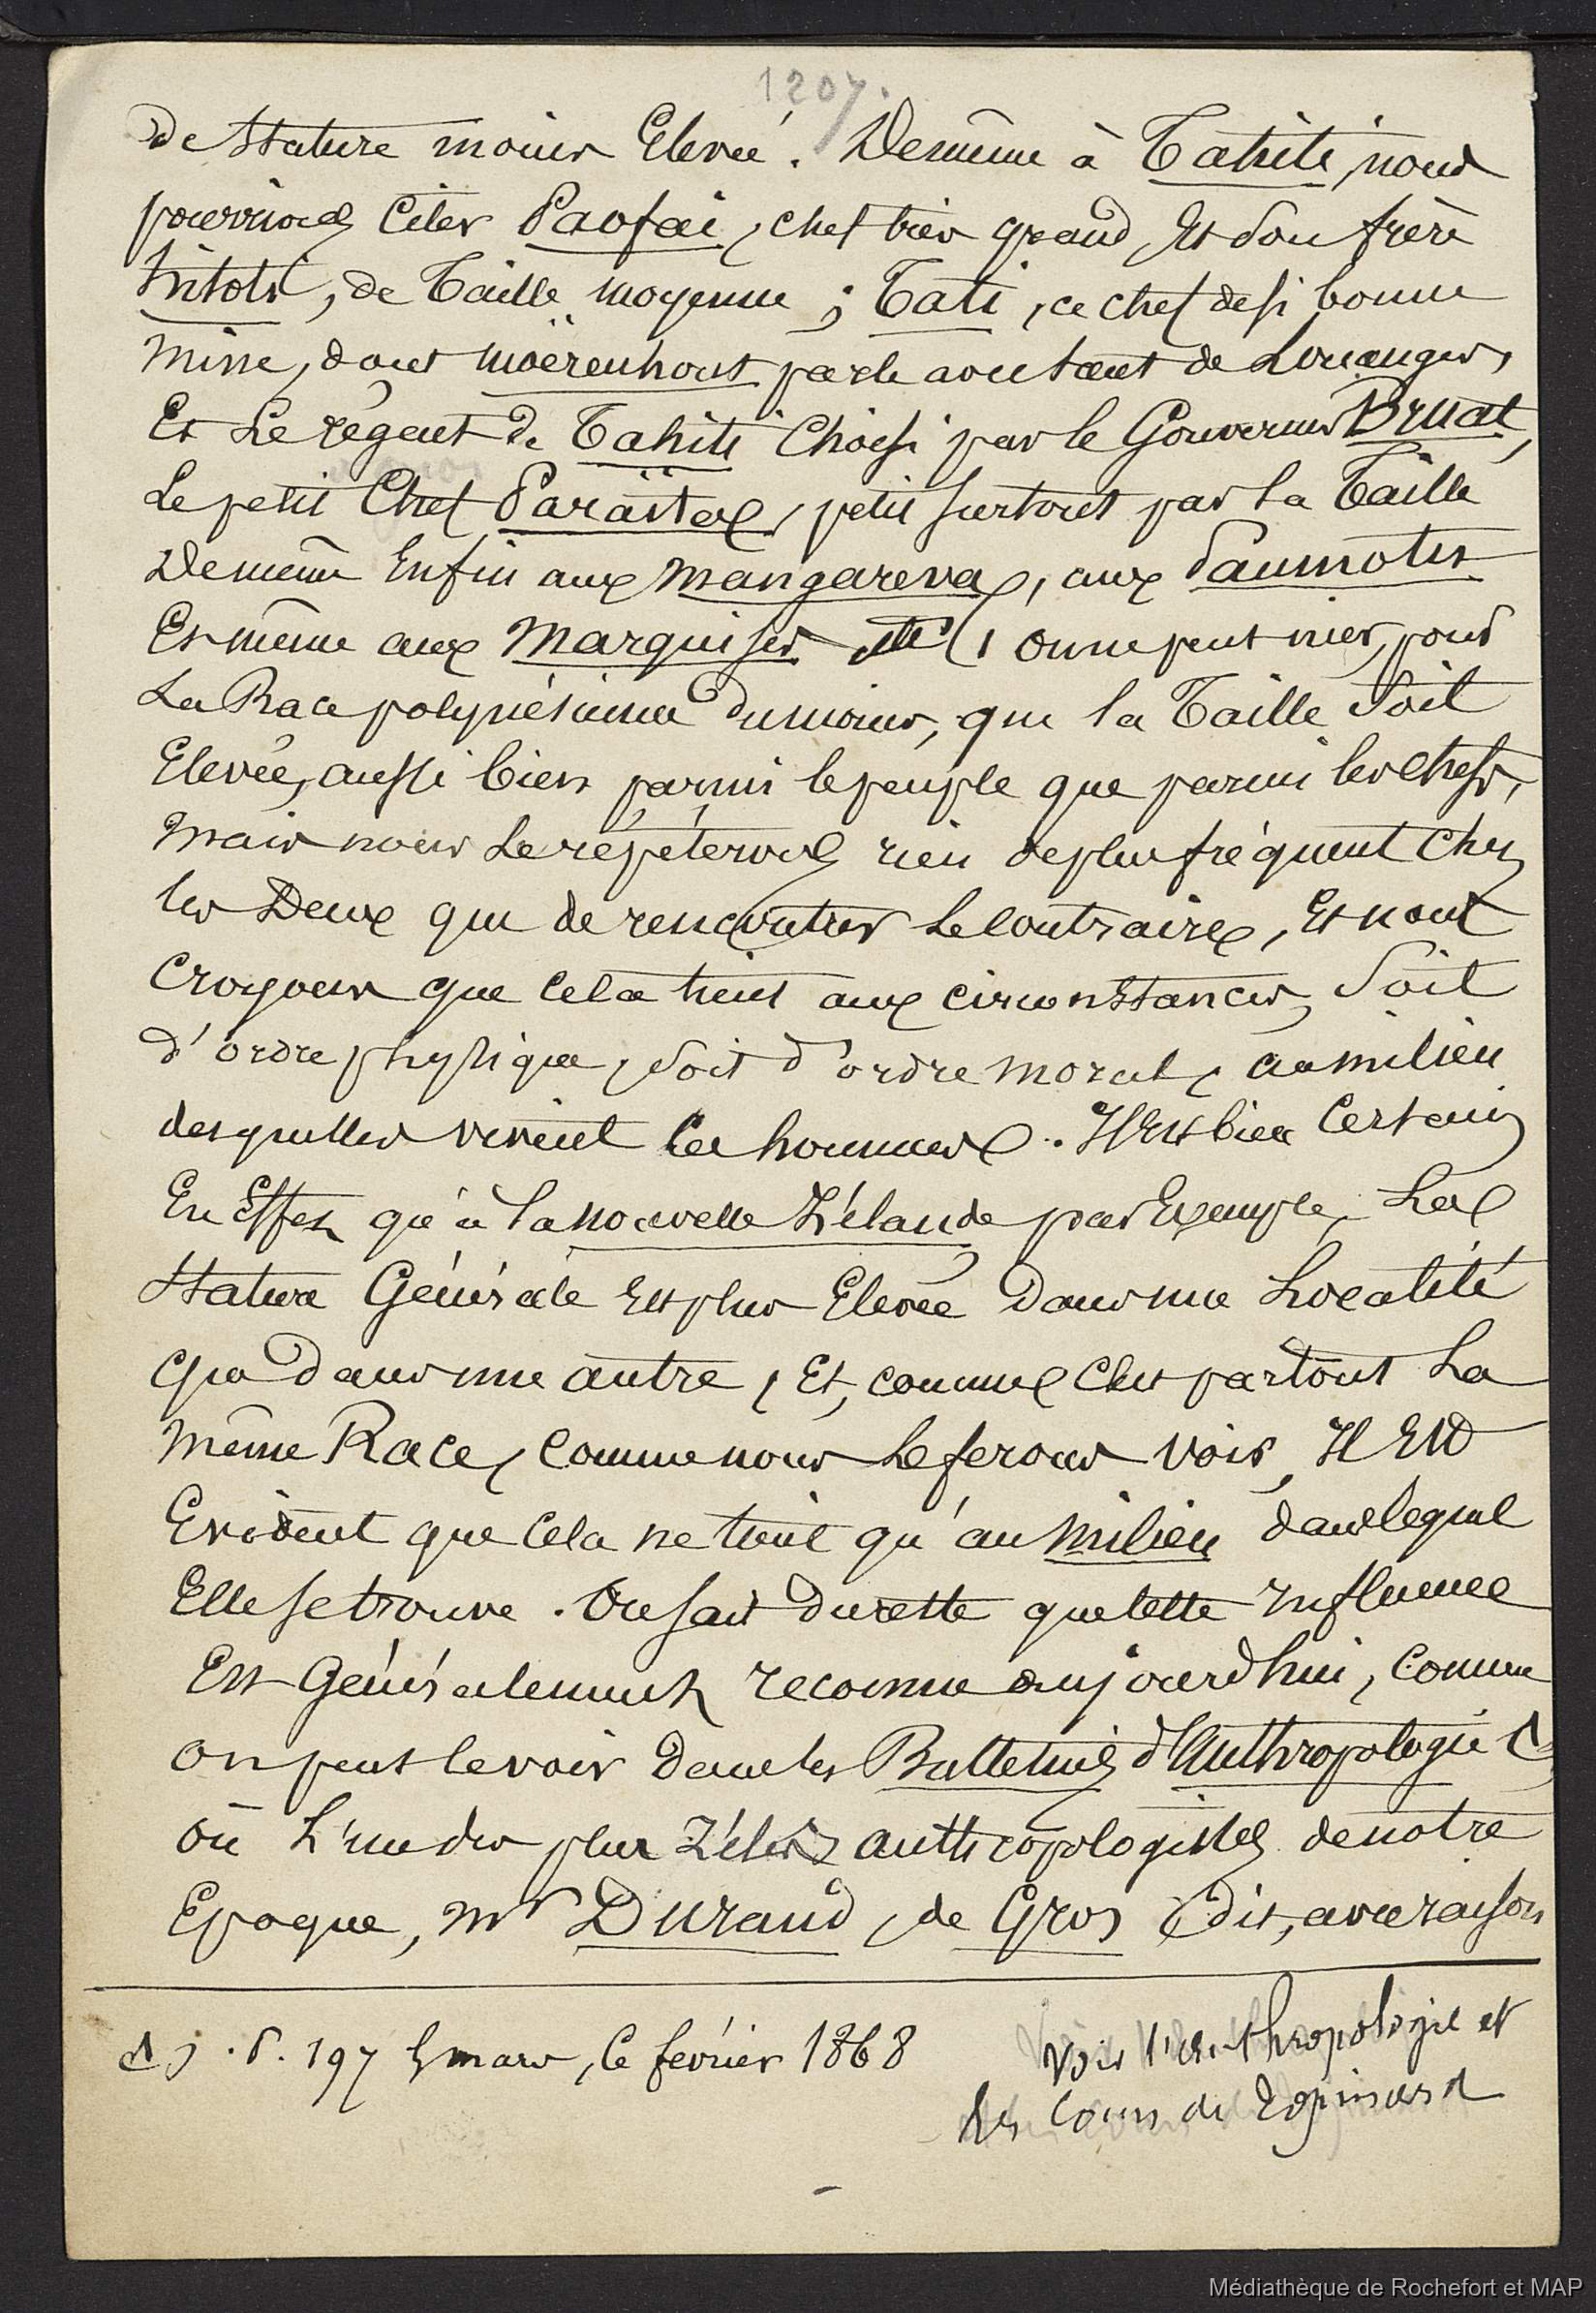 1207.
de Stature moins Elevée. Demême à Tahiti, nous
pourrions Citer Paofai, chef très grand, Et Son frère
hitoti, de Taille moyenne; Tati, ce chef de si bonne
mine, dont moërenhout parle avec tant de Louanges,
Et Le régent de Tahiti Choisi par le Gouverneur Bruat,
Le petit Chef Paraïta, petit surtout par la Taille
Demême Enfin aux mangareva, aux Paumotus
Et même aux Marquises &tc, On ne peut nier, pour
La Race polynésienne du moins, que la Taille Soit
Elevée, aussi bien parmi le peuple que parmi les chefs,
mais nous Le répéterons rien de plus fréquent Chez
les Deux que de rencontrer Le Contraire, Et nous
Croyons que Cela tient aux circonstances, Soit
d'ordre physique, Soit d'ordre moral, au milieu
desquelles vivent les hommes. Il Est bien Certain
En Effet qu'à la nouvelle Zélande par Exemple, La
Stature Générale Est plus Elevée Dans une Localité
que Dans une autre, Et, comme C'est partout La
même Race, Comme nous Le ferons voir, Il Est
Evident que Cela ne tient qu'au milieu dans lequel
Elle se trouve. On sait Du reste que Cette Influence
Est Généralement reconnue aujourd'hui, Comme
on peut le voir Dans les Bulletins d'Anthropologie
où L'un des plus Zélés anthropologistes de notre
Epoque, Mr Durand, de Gros Dit, avec raison
p. 197 mars, février 1868
Voir l'anthropologie et
les Cours de Topinard
Médiathèque de Rochefort et MAP